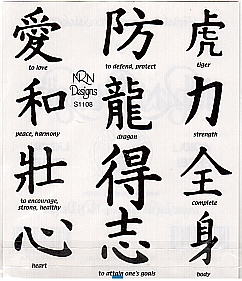 愛
to love
防
to defend, protect
虎
tiger
NRN
Designs
S1108
和
peace, harmony
龍
dragon
力
strength
壯
to encourage,
strong, healthy
得
志
to attain one's goals
全
complete
心
heart
身
body